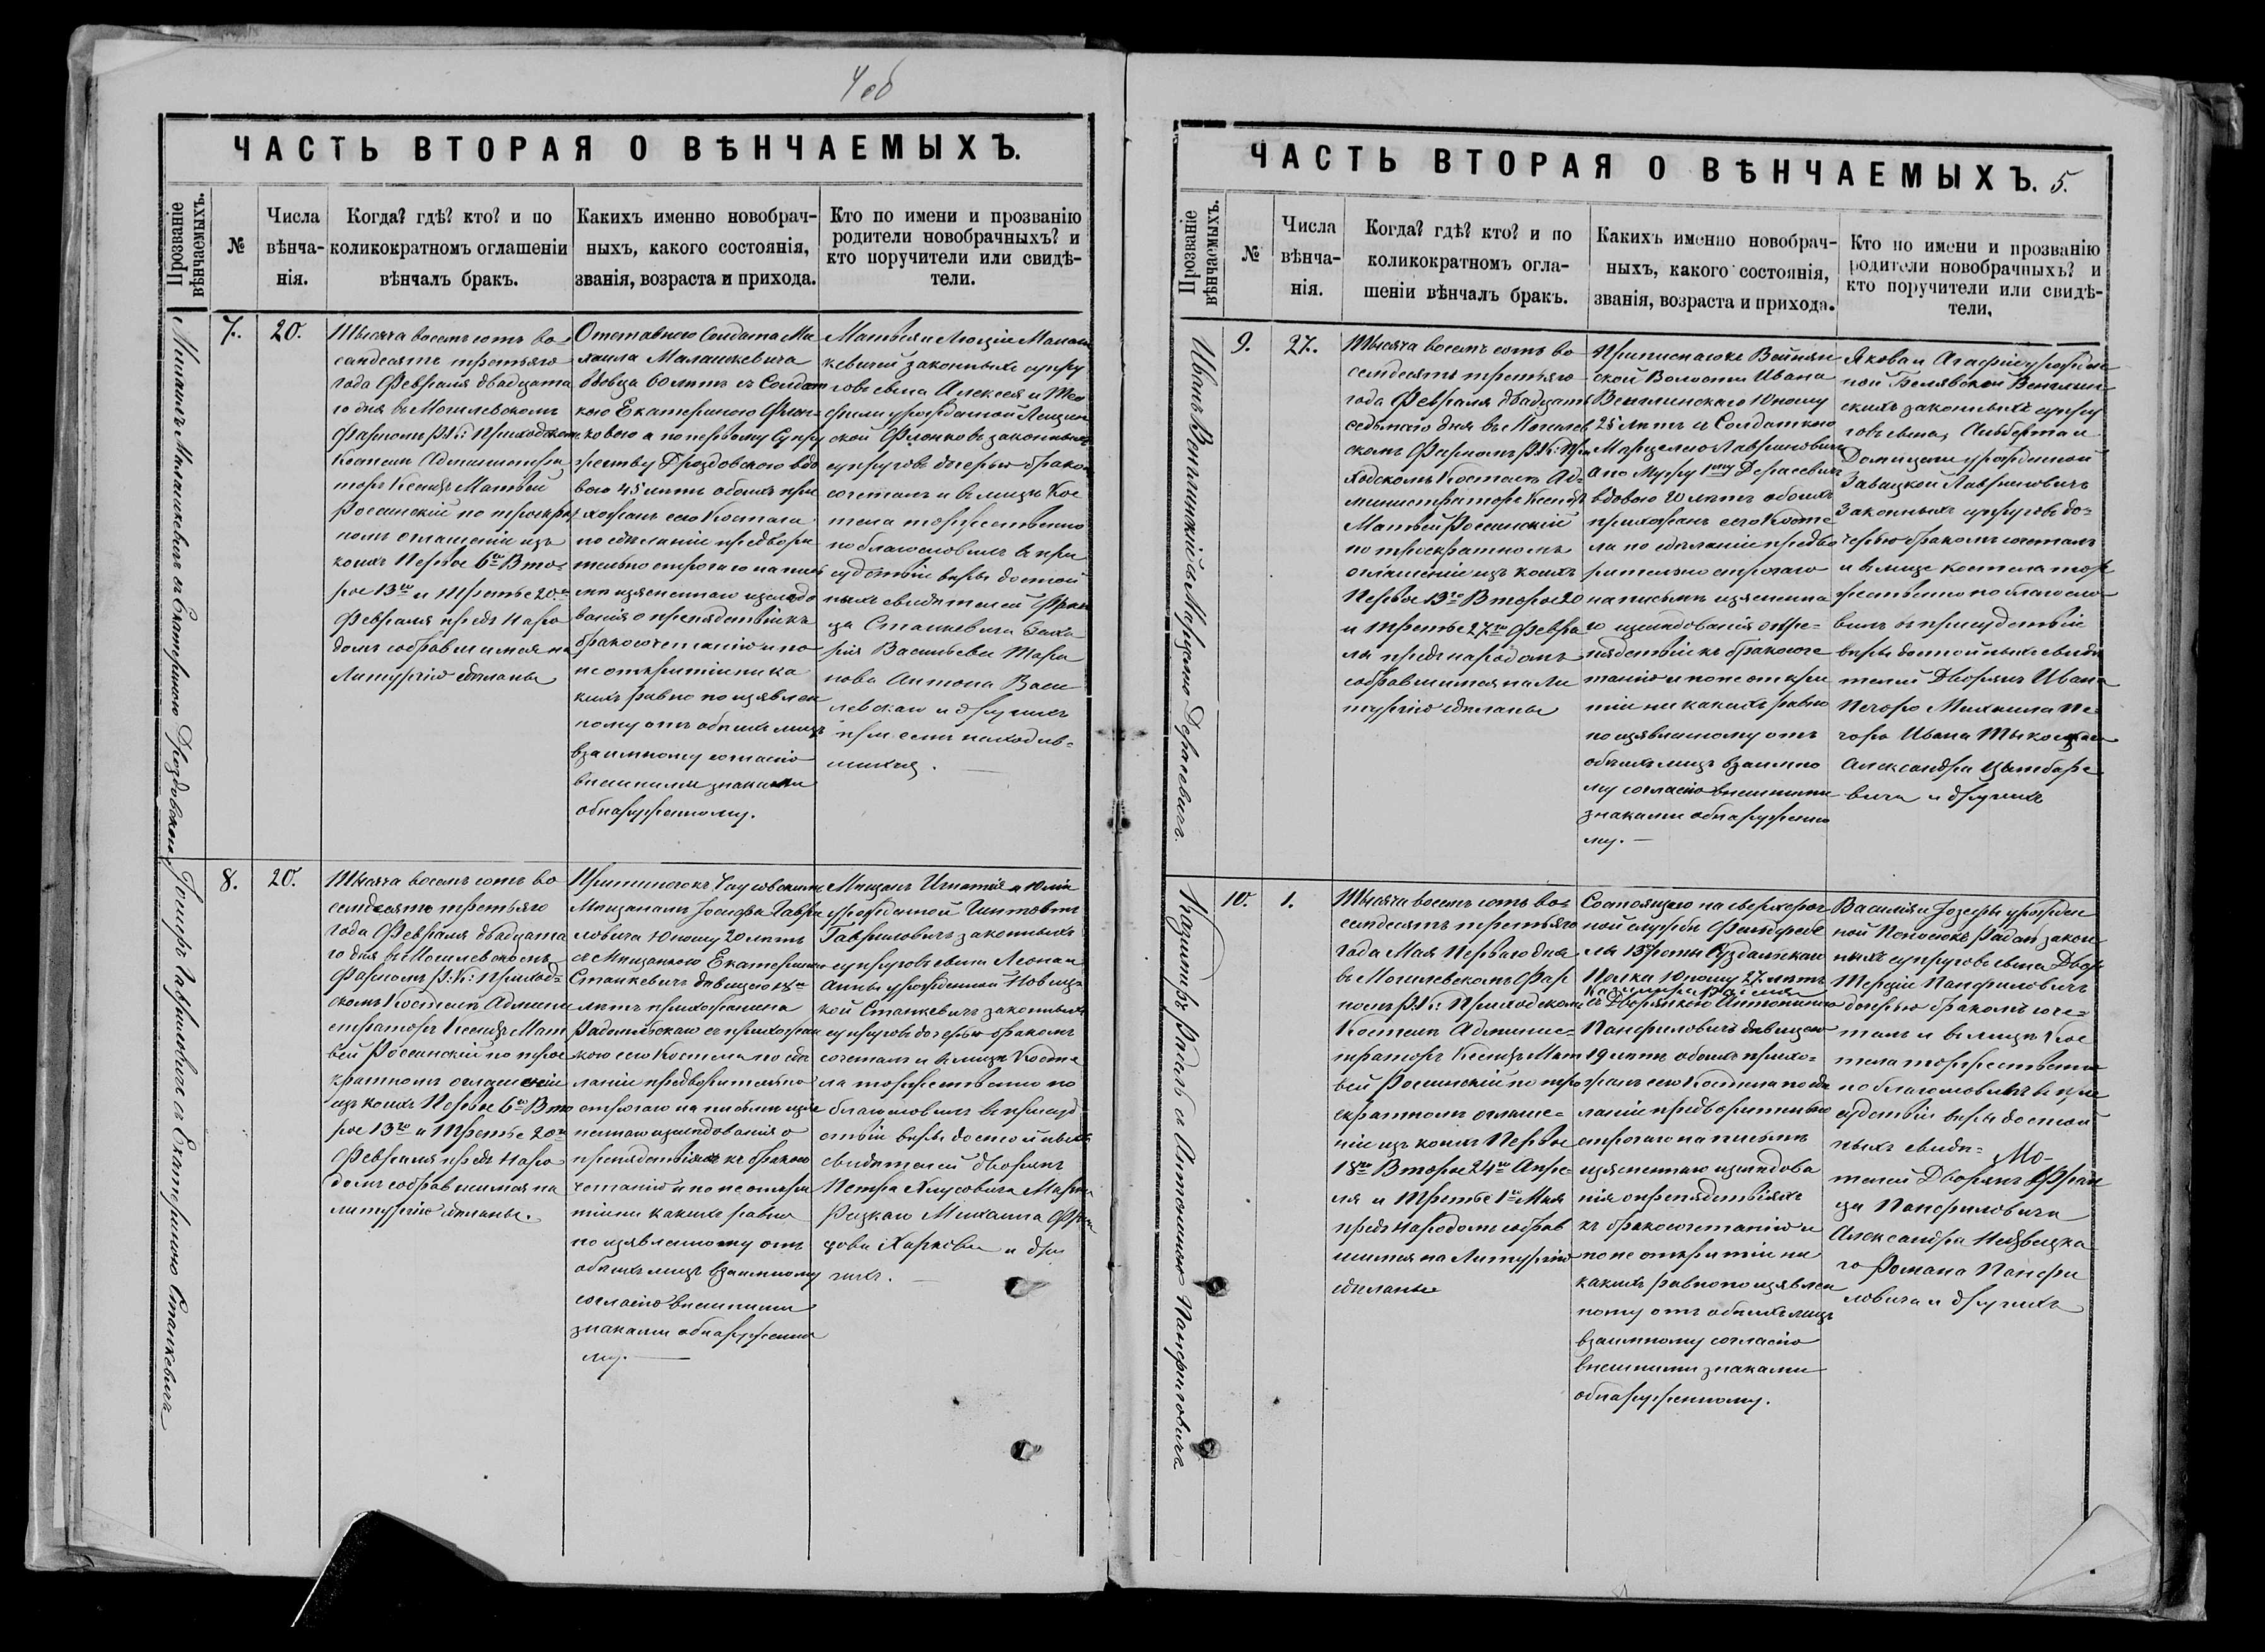 4 об
ЧАСТЬ ВТОРАЯ О ВѢНЧАЕМЫХЪ.
Прозваніе
вѣнчаемыхъ.
№
Числа
вѣнча-
нія.
Когда? гдѣ? кто? и по
коликократномъ оглашеніи
вѣнчалъ бракъ.
Какихъ именно новобрач-
ныхъ, какого состоянія,
званія, возраста и прихода.
Кто по имени и прозванію
родители новобрачныхъ? и
кто поручители или свидѣ-
тели.
Михаилъ Малашкевичъ съ Екатериною Дроздовскою
7.
20.
Тысяча восемь сотъ во-
семдесятъ третьяго
года Февраля двадцата
го дня въ Могилевскомъ
Фарномъ Р: К: Приходскомъ
Костелѣ Администра
торъ Ксендзъ Матвей
Россинскій по троекрат
номъ оглашеніи изъ
коихъ Первое 6го Вто-
рое 13го и Третье 20го
Февраля предъ Наро
домъ собравшимся на
Литургію сдѣланы
Отставного Солдата Ми
хаила Малашкевича
вдовца 60 лѣтъ съ Солдат
кою Екатериною Флен-
ковою а по первому Супру
жеству Дроздовскою вдо
вою 45 лѣтъ обоихъ при
хожанъ сего Костела
по сдѣланіи предвари
тельно строгаго на пись
мѣ изъясненнаго изслѣдо
ванія о препядствіяхъ къ
бракосочетанію и по
не открытіи ника
кихъ равно по изъявлен
ному отъ обѣихъ лицъ
взаимному согласію
внешними знаками
обнаруженному.
Матвея и Люціи Малаш
кевичей законныхъ супру
говъ сына Алексея и Тео
филіи урожденной Лещин
ской Фленковъ законныхъ
супруговъ дочерью бракомъ
сочеталъ и въ лицѣ Кос
тела торжественно
поблагословилъ въ при
судствіи веры достой
ныхъ свидѣтелей Фран
ца Станкевича Заха
рія Васильева Мари
нова Антона Васи
левскаго и другихъ
при семъ находив-
шихся.
Іосифъ Гавриловичъ съ Екатериною Станкевичъ
8.
20.
Тысяча восемь сотъ во
семдесятъ третьяго
года Февраля двадцата
го дня въ Могилевскомъ
Фарномъ Р: К: Приход-
скомъ Костелѣ Админи
страторъ Ксендзъ Мат
вей Россинскій по трое
кратномъ оглашеніи
изъ коихъ Первое 6го Вто
рое 13го и Третье 20го
Февраля предъ Наро
домъ собравшимся на
литургію сдѣланы.
Мещанамъ Іосифа Гаври
ловича Юношу 20 лѣтъ
съ Мещанкою Екатериною
Станкевичъ дѣвицею 18
лѣтъ прихожанина
кою сего Костела по сдѣ
ланіи предварительно
строгаго на письмѣ изъя
сненнаго изслѣдованія о
препядствіяхъ къ бракосо
четанію и по не откры
тіи никакихъ равно
по изъявленному отъ
обѣихъ лицъ взаимному
согласію внешними
знаками обнаруженно
му.
Мещанъ Игнатія и Юліи
Гавриловичъ законныхъ
супруговъ сына Леона и
Анны урожденной Новиц
кой Станкевичъ законныхъ
супруговъ дочерью бракомъ
сочеталъ и въ лицѣ Косте
ла торжественно по
благословилъ въ присуд
ствіи веры достойныхъ
свидѣтелей дворянъ
и дру
гихъ.
ЧАСТЬ ВТОРАЯ О ВѢНЧАЕМЫХЪ. 5.
Прозваніе
вѣнчаемыхъ.
№
Числа
вѣнча-
нія.
Когда? гдѣ? кто? и по
коликократномъ огла-
шеніи вѣнчалъ бракъ.
Какихъ именно новобрач-
ныхъ, какого состоянія,
званія, возраста и прихода.
Кто по имени и прозванію
родители новобрачныхъ? и
кто поручители или свидѣ-
тели.
Иванъ Венглинскій съ Марцелею Дерасевичъ
9.
27.
Тысяча восемь сотъ во
семдесятъ третьяго
года Февраля двадцать
седьмаго дня въ Могилев
скомъ Фарномъ Р: К: При
ходскомъ Костелѣ Ад-
министраторъ Ксендзъ
Матвей Россинскій
по троекратномъ
оглашеніи изъ коихъ
Первое 13го Второе 20
и Третье 27го Февра
ля предъ народомъ
собравшимся на Ли
тургію сдѣланы
ской Волости Ивана
Венглинскаго Юношу
25 лѣтъ съ Солдаткою
Марцелею Лавриновичъ
а по Мужу 1му Дерасевичъ
вдовою лѣтъ обоихъ
прихожанъ сего Косте
ла по сдѣланіи предва
рительно строгаго
на письмѣ изъясненна
го изслѣдованія о пре-
пядствіяхъ къ бракосоче
танію и по не откры
тіи никакихъ равно
по изъявленному отъ
обѣихъ лицъ взаимно
му согласію внешними
знаками обнаруженно
му.
Якова и Агафіи урожден
ной Белявской Венглин
скихъ законныхъ супру
говъ сына, Альберта и
Доминели урожденной
Завацкой Лавриновичъ
Законныхъ супруговъ до-
черью бракомъ сочеталъ
и въ лицѣ костела тор
жественно поблагосло
вилъ въ присудствіи
веры достойныхъ свидѣ
телей Дворянъ Ивана
Печоро Михаила Пе
чоро Ивана
Александра Цымбаре
вича и другихъ
Казимиръ Радаль съ Антониною Панфиловичъ
10.
1.
Тысяча восемь сотъ во-
семдесятъ третьяго
года Мая Перваго дня
въ Могилевскомъ Фар
номъ Р: К: Приходскомъ
Костелѣ Админис-
траторъ Ксендзъ Мат
вей Россинскій по тро
екратномъ оглаше-
ніи изъ коихъ Первое
18го Второе 24го Апре-
ля и Третье 1го Мая
предъ Народомъ собрав
шимся на Литургію
сдѣланы
Состоящаго на сверхсроч
ной службѣ Фельдфебе
ля 13 роты Суздальскаго
Полка Юношу 27 лѣтъ
съ Дворянкою Антониною
Панфиловичъ дѣвицею
19 лѣтъ обоихъ прихо-
жанъ сего Костела по сдѣ
ланіи предварительно
строгаго на письмѣ
изъясненнаго изслѣдова
нія о препядствіяхъ
къ бракосочетанію и
по не открытіи ни
какихъ равно по изъявлен
ному отъ обѣихъ лицъ
взаимному согласію
внешними знаками
обнаруженному.
Василія и Іозефы урожден
законн
ныхъ супруговъ сына Двор
Панфиловичъ
дочерью бракомъ соче-
талъ и въ лицѣ Кос
тела торжественно
поблагословилъ въ при
судствіи веры достой
ныхъ свидѣ-
телей Дворянъ Фран
ца Панфиловича
Александра Недзвецка
го Романа Панфи
ловича и другихъ